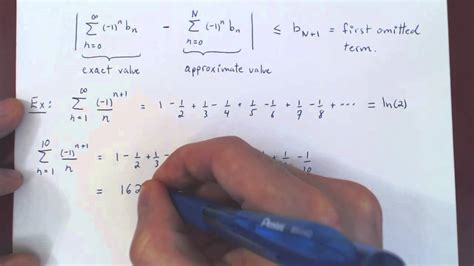 | ∑_{n=0}^{∞} (-1)^n b_n - ∑_{n=0}^{N} (-1)^n b_n | ≤ b_{N+1} = first omitted
term.
exact value approximate value
Ex: ∑_{n=1}^{∞} (-1)^{n+1}/n = 1 - 1/2 + 1/3 - 1/4 + 1/5 - 1/6 + 1/7 - 1/8 + ... = ln(2)
∑_{n=1}^{10} (-1)^{n+1}/n = 1 - 1/2 + 1/3 - 1/10
= 162
Pentel